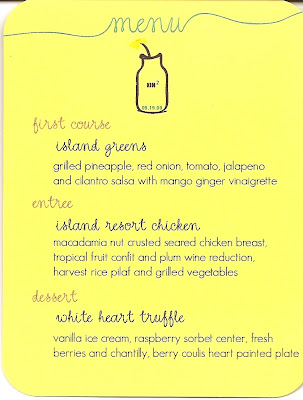 menu
KIN²
09.19.09
first course
island greens
grilled pineapple, red onion, tomato, jalapeno
and cilantro salsa with mango ginger vinaigrette
entree
island resort chicken
macadamia nut crusted seared chicken breast,
tropical fruit confit and plum wine reduction,
harvest rice pilaf and grilled vegetables
dessert
white heart truffle
vanilla ice cream, raspberry sorbet center, fresh
berries and chantilly, berry coulis heart painted plate